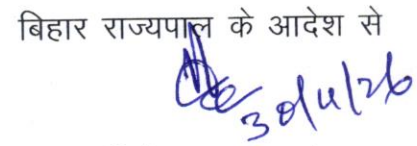 बिहार राज्यपाल के आदेश से
30/4/26